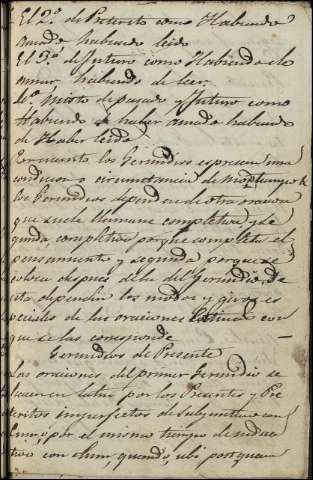 El 2º. de Preterito como Habiendo
amado habiendo leido
El 3º. de futuro como Habiendo de
amar, habiendo de leer.
4º. Mixto de pasado y futuro como
Habiendo de haber amado habiendo
de Haber leido
Por cuanto los Gerundios espresan una
condicion o circunstancia de
los Gerundios dependen de otra oracion
que suele llamarse completiva y se
gunda, completiva porque completa el
pensamiento y segunda porque se
coloca despues de la del Gerundio, de
esta dependen los modos y giros es
peciales de las oraciones latinas con
que se las corresponde
Gerundios de Presente
Las oraciones del primer Gerundio se
hacen en latin por los Presentes y Pre
teritos imperfectos de Subjuntivo con
Cum, o por el mismo tiempo de indica
tivo con dum, quando, ubi postquam